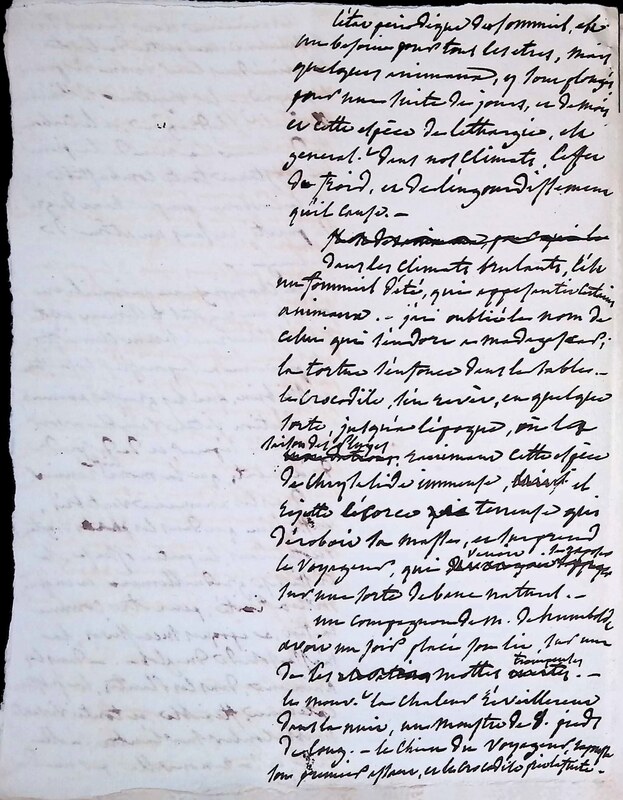 L'état périodique du sommeil, est
un besoin pour tous les etres, mais
quelques animaux, y sont plongés
pour une suite de jours, et de mois
et cette espèce de lethargie, est
general.t dans nos climats, l'effet
du froid, et de l'engourdissement
qu'il cause. –
dans les climats brulants, c'est
un sommeil d'été, qui appesantit certains
animaux. – j'ai oublié le nom de
celui qui s'endort a madagascar;
la tortue s'enfonce dans les sables. –
le crocodile, s'en revêt, en quelque
sorte, jusqu'à l'époque, où les
saison des pluyes
ranimant cette espèce
de chrysalide immense, il
rejette l'écorce terreuse qui
déroboit sa masse, et surprend
le voyageur, qui venoit
sur une sorte de banc naturel. –
un compagnon de M. de humboldt
avoit un jour placé son lit, sur une
de ces mottes trompeuses. –
le mouv.t la chaleur éveillerent
dans la nuit, un monstre de 8. pieds
de long. – le chien du voyageur,
son premier effort, et le crocodile prit la fuite. –